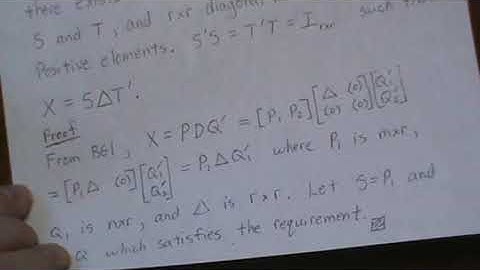 there exists
S and T, and rxr diagonal
Positive elements. S'S = T'T = I_rxr such that
X = SΔT'.
Proof
From B61, X = PDQ' = [P₁ P₂] [Δ (0) (0) (0)] [Q₁' Q₂']
= [P₁Δ (0)] [Q₁' Q₂'] = P₁ΔQ₁' where P₁ is mxr,
Q₁ is nxr, and Δ is rxr. Let S=P₁ and
Q which satisfies the requirement.